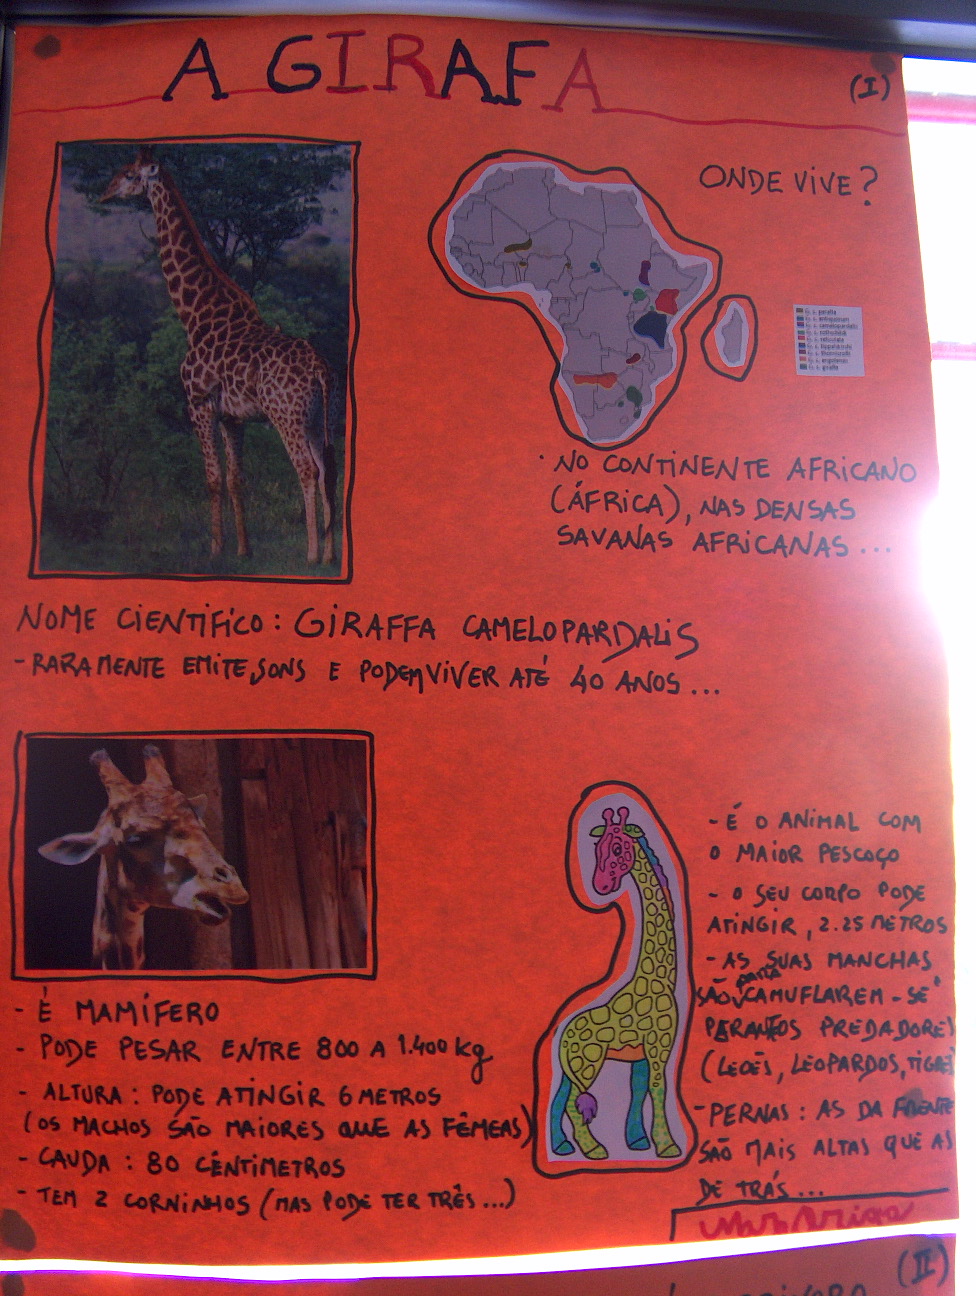 A GIRAFA
(I)
ONDE VIVE?
· NO CONTINENTE AFRICANO
(ÁFRICA), NAS DENSAS
SAVANAS AFRICANAS...
NOME CIENTIFÍCO: GIRAFFA CAMELOPARDALIS
- RARAMENTE EMITE SONS E PODEM VIVER ATÉ 40 ANOS...
- É MAMÍFERO
- PODE PESAR ENTRE 800 A 1.400 kg
- ALTURA: PODE ATINGIR 6 METROS
(OS MACHOS SÃO MAIORES QUE AS FÊMEAS)
- CAUDA: 80 CÊNTIMETROS
- TEM 2 CORNINHOS (MAS PODE TER TRÊS...)
- É O ANIMAL COM
O MAIOR PESCOÇO
- O SEU CORPO PODE
ATINGIR, 2.25 METROS
- AS SUAS MANCHAS
SÃO para CAMUFLAREM-SE
PERANTOS PREDADORES
(LEOES, LEOPARDOS, TIGRE
- PERNAS: AS DA FRENTE
SÃO MAIS ALTAS QUE AS
DE TRÁS...
(II)